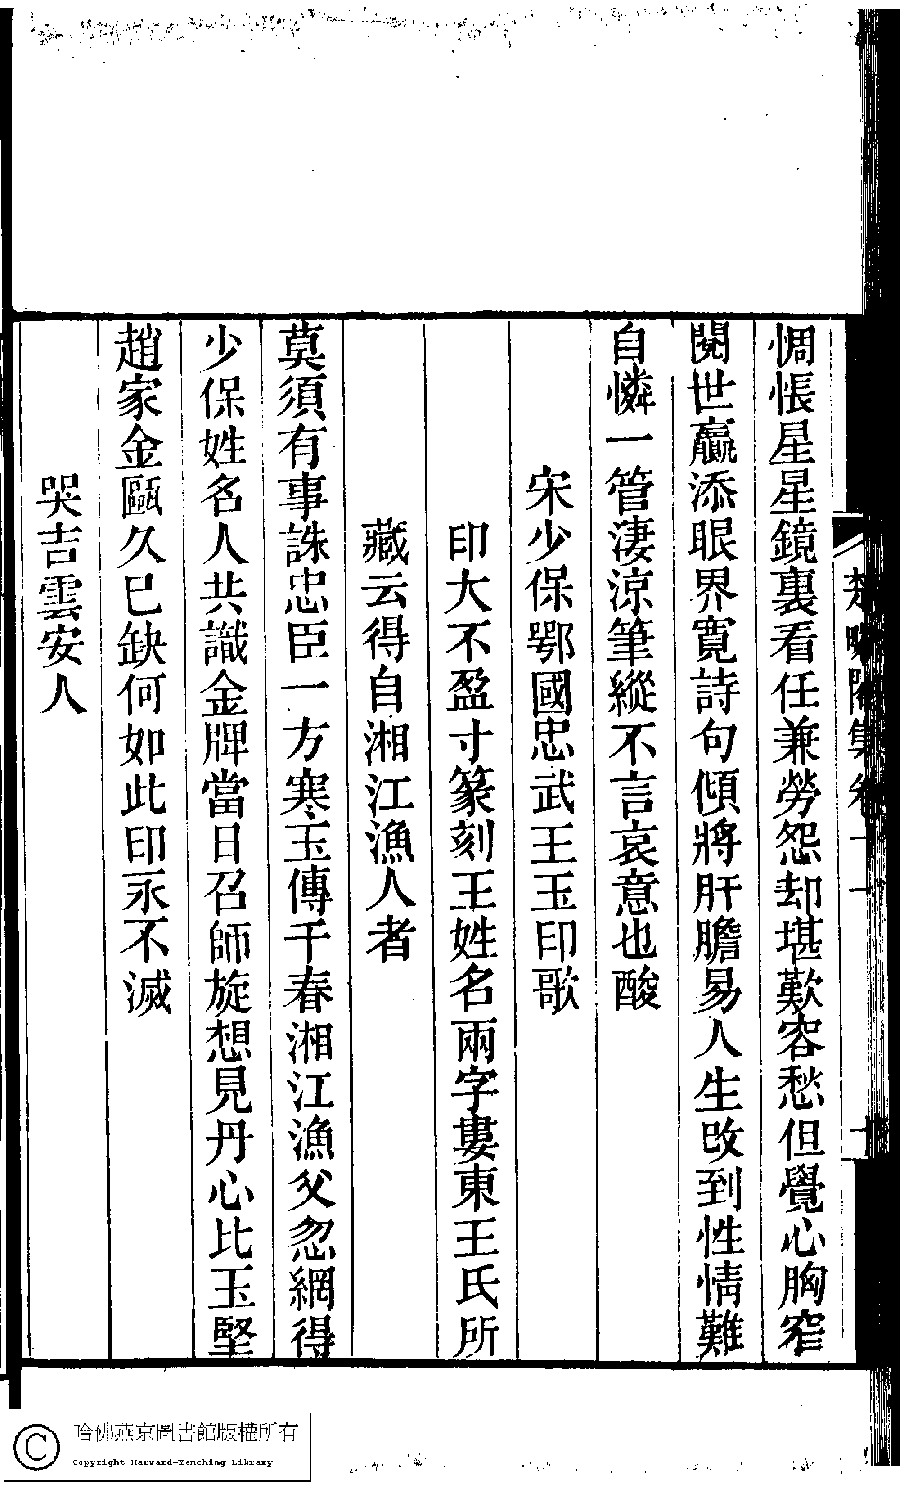 惆悵星星鏡裏看任兼勞怨却堪歎容愁但覺心胸窄
閱世贏添眼界寬詩句傾將肝膽易人生改到性情難
自憐一管淒涼筆縱不言哀意也酸
宋少保鄂國忠武王玉印歌
印大不盈寸篆刻王姓名兩字婁東王氏所
藏云得自湘江漁人者
莫須有事誅忠臣一方寒玉傳千春湘江漁父忽網得
少保姓名人共識金牌當日召師旋想見丹心比玉堅
趙家金甌久已缺何如此印永不滅
哭吉雲安人
哈佛燕京圖書館版權所有
Copyright Harvard-Yenching Library